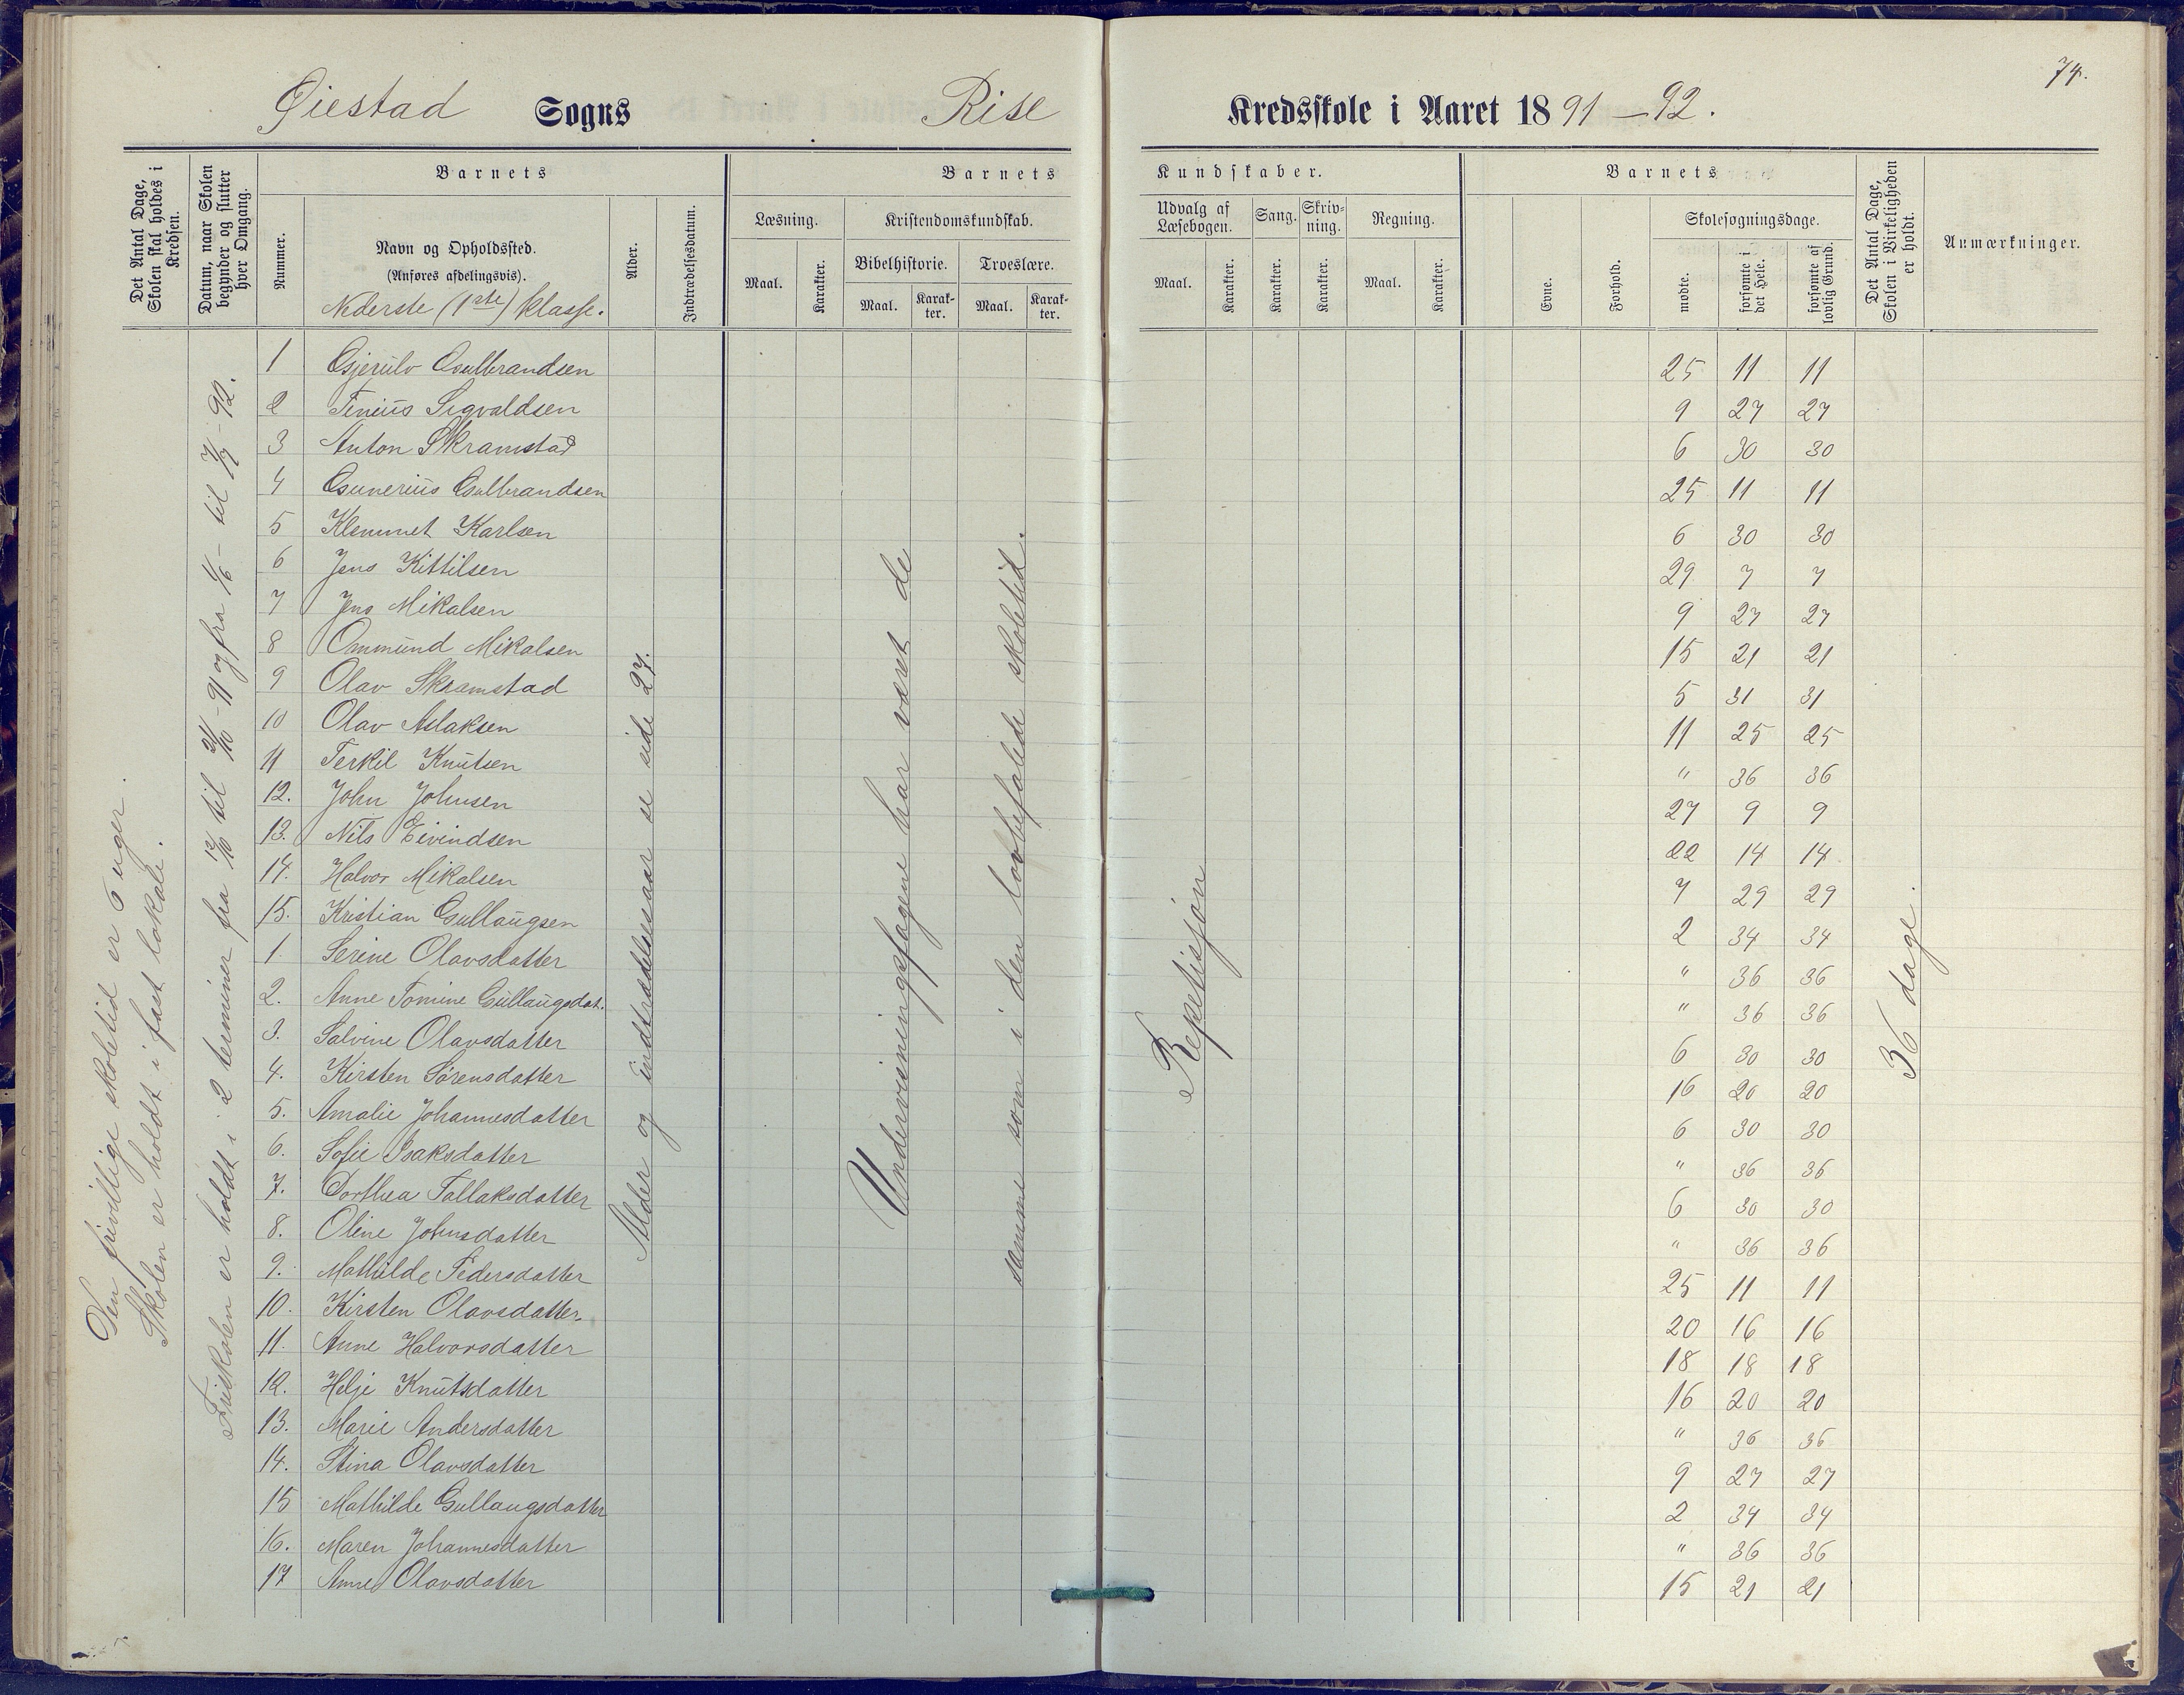 74.
Øiestad Sogns Rise Kredsskole i Aaret 1891-92.
Det Antal Dage, Skolen skal holdes i Kredsen.
Datum, naar Skolen begynder og slutter hver Omgang.
Barnets
Nummer.
Navn og Opholdssted.
(Anføres afdelingsvis).
Nederste (1ste) klasse.
Alder.
Indtrædelsesdatum.
Barnets Kundskaber.
Læsning.
Maal.
Karakter.
Kristendomskundskab.
Bibelhistorie.
Maal.
Karakter.
Troeslære.
Maal.
Karakter.
Udvalg af Læsebogen.
Maal.
Karakter.
Sang.
Karakter.
Skrivning.
Karakter.
Regning.
Maal.
Karakter.
Barnets
Evne.
Forhold.
Skolesøgningsdage.
mødte.
forsømte i det Hele.
forsømte af lovlig Grund.
Det Antal Dage, Skolen i Virkeligheden er holdt.
Anmærkninger.
Den frivillige skoletid er 6 uger.
Skolen er holdt i fast lokale.
Friskolen er holdt i 2 terminer fra 12/10 til 21/10 - 91 og fra 1/6 - til 7/7 - 92.
Alder og indtrædelsesaar se side 27.
Undervisningsfagene har været de
samme som i den lovbefalede skoletid.
Repetisjon
36 dage.
1 Gjerulv Gulbrandsen 25 11 11
2 Tenius Sigvaldsen 9 27 27
3 Anton Skramstad 6 30 30
4 Gunerius Gulbrandsen 25 11 11
5 Klemmet Karlsen 6 30 30
6 Jens Kittilsen 29 7 7
7 Jens Mikalsen 9 27 27
8 Ommund Mikalsen 15 21 21
9 Olav Skramstad 5 31 31
10 Olav Aslaksen 11 25 25
11 Terkil Knutsen " 36 36
12. John Johnsen 27 9 9
13. Nils Eivindsen 22 14 14
14. Halvor Mikalsen 7 29 29
15. Kristian Gullaugsen 2 34 34
1. Serine Olavsdatter " 36 36
2. Anne Tomine Gullaugsdat. " 36 36
3. Salvine Olavsdatter 6 30 30
4. Kirsten Sørensdatter 16 20 20
5. Amalie Johannesdatter 6 30 30
6. Sofie Isaksdatter " 36 36
7. Dorthea Tallaksdatter 6 30 30
8. Oline Johnsdatter " 36 36
9. Mathilde Pedersdatter 25 11 11
10. Kirsten Olavsdatter 20 16 16
11. Anne Halvorsdatter 18 18 18
12. Helje Knutsdatter 16 20 20
13. Marie Andersdatter " 36 36
14. Stina Olavsdatter 9 27 27
15 Mathilde Gullaugsdatter 2 34 34
16. Maren Johannesdatter " 36 36
17 Anne Olavsdatter 15 21 21